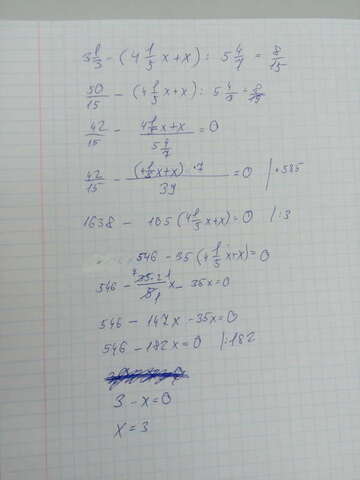 3 1/3 - (4 1/5 x+x) : 5 4/7 = 8/15
50/15 - (4 1/5 x+x) : 5 4/7 = 8/15
42/15 - (4 1/5 x+x)/(5 4/7) = 0
42/15 - ((4 1/5 x+x) · 7)/39 = 0 /·585
1638 - 105(4 1/5 x+x)=0 /:3
546 - 35(4 1/5 x+x)=0
546 - 35·21/5 x - 35x=0
546 - 147x - 35x=0
546 - 182x=0 /:182
3 - x=0
x=3